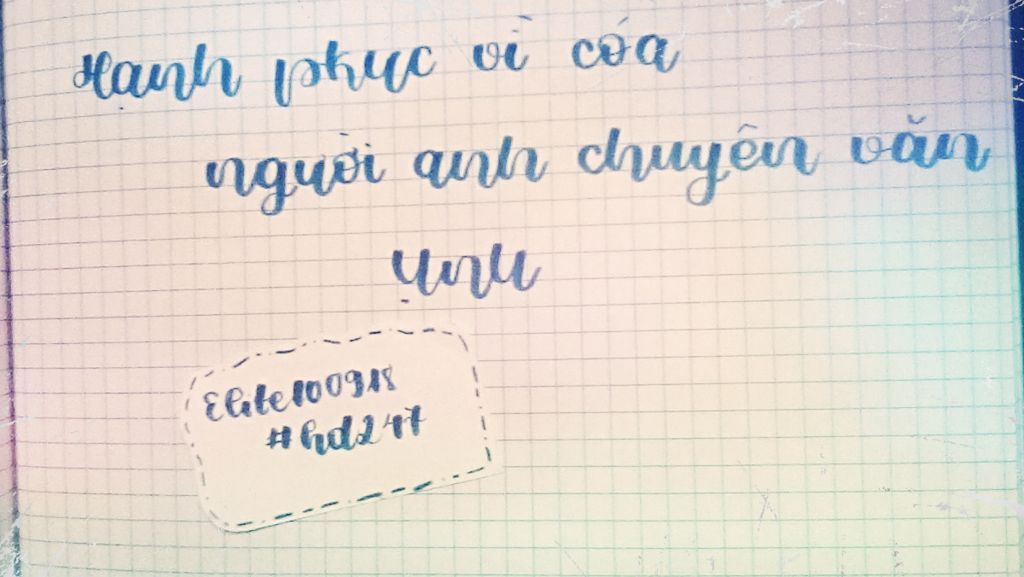 Hạnh phục vì cóa
người anh chuyên văn
Elite100918
#hd247